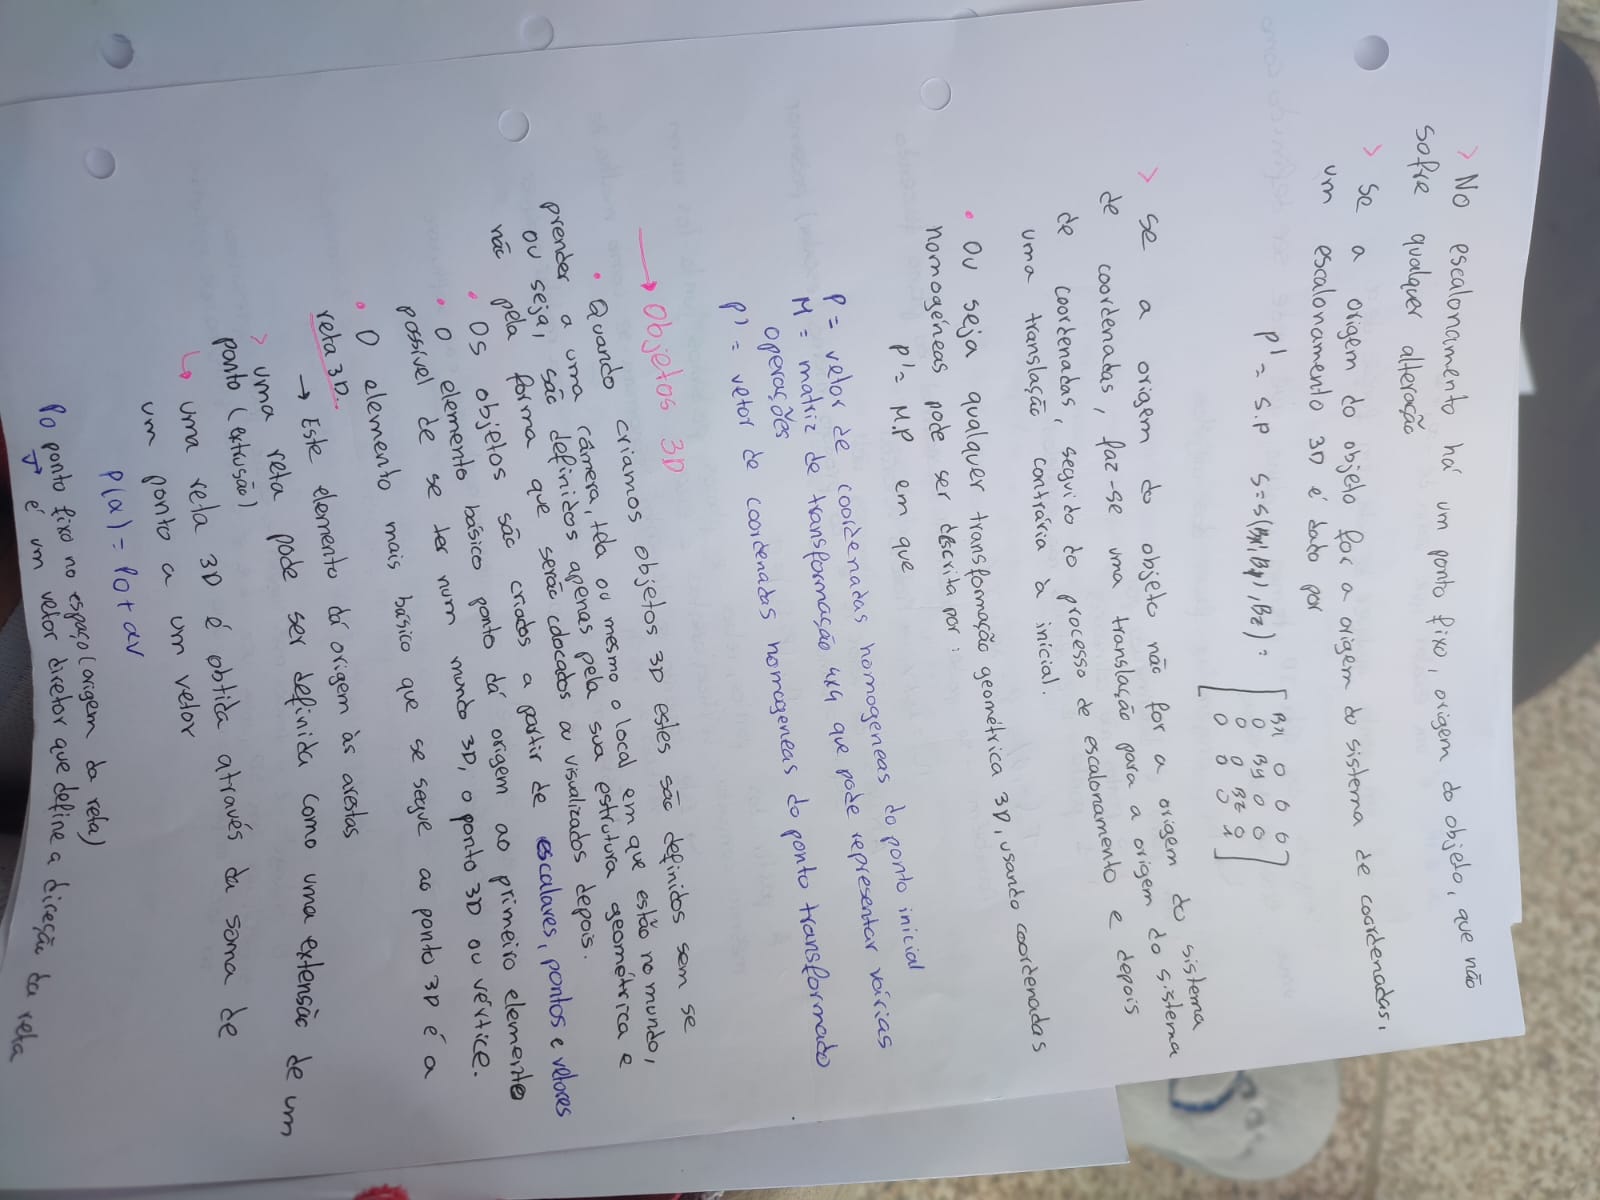 > No escalonamento há um ponto fixo, origem do objeto, que não
sofre qualquer alteração
> Se a origem do objeto for a origem do sistema de coordenadas,
um escalonamento 3D é dado por
P' = S.P S=S(Bx, By, Bz) =
Bx 0 0 0
0 By 0 0
0 0 Bz 0
0 0 0 1
> Se a origem do objeto não for a origem do sistema
de coordenadas, faz-se uma translação para a origem do sistema
de coordenadas, seguido do processo de escalonamento e depois
uma translação contrária à inicial.
• Ou seja qualquer transformação geométrica 3D, usando coordenadas
homogéneas pode ser descrita por:
P' = M.P em que
P = vetor de coordenadas homogeneas do ponto inicial
M = matriz de transformação 4x4 que pode representar várias
operações
P' = vetor de coordenadas homogeneas do ponto transformado
→ Objetos 3D
• Quando criamos objetos 3D estes são definidos sem se
prender a uma câmera, tela ou mesmo o local em que estão no mundo,
ou seja, são definidos apenas pela sua estrutura geométrica e
não pela forma que serão colocados ou visualizados depois.
• Os objetos são criados a partir de escalares, pontos e vetores
• O elemento básico ponto dá origem ao primeiro elemento
possível de se ter num mundo 3D, o ponto 3D ou vértice.
• O elemento mais básico que se segue ao ponto 3D é a
reta 3D.
→ Este elemento dá origem às arestas
> uma reta pode ser definida como uma extensão de um
ponto (extrusão)
↳ uma reta 3D é obtida através da soma de
um ponto a um vetor
P(α) = P0 + αv
P0 ponto fixo no espaço (origem da reta)
v⃗ é um vetor diretor que define a direção da reta